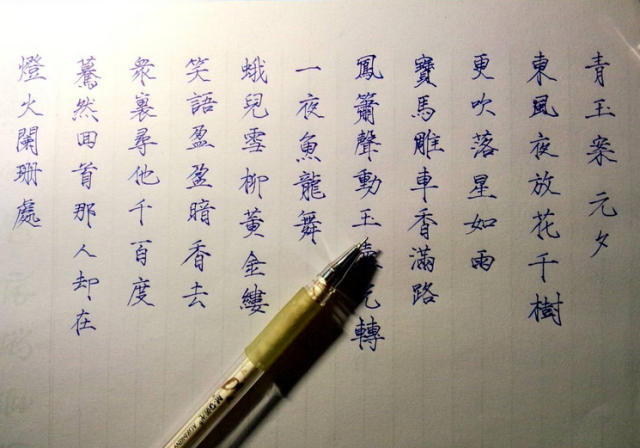 青玉案 元夕
東風夜放花千樹
更吹落星如雨
寶馬雕車香滿路
鳳簫聲動玉光轉
一夜魚龍舞
蛾兒雪柳黃金縷
笑語盈盈暗香去
衆裏尋他千百度
驀然回首那人却在
燈火闌珊處
M&G